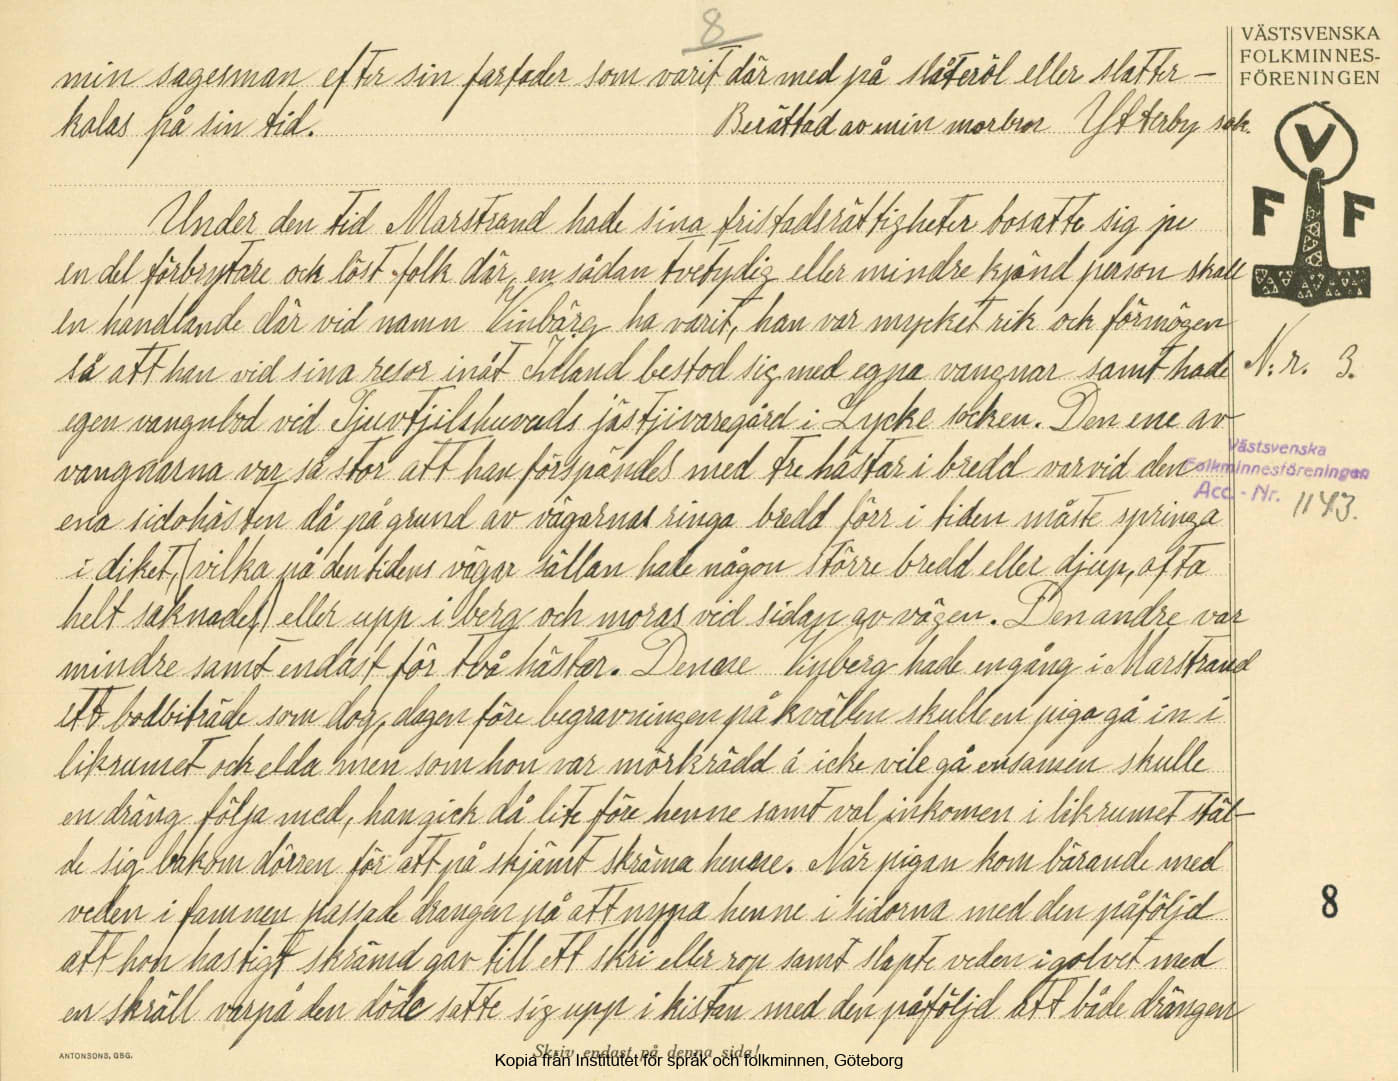 8
VÄSTSVENSKA
FOLKMINNES-
FÖRENINGEN
min sagesman efter sin farfader som varit där med på slåtteröl eller slatter-
kalas på sin tid.
Berättad av min morbror Ytterby sok.
V
F F
Under den tid Marstrand hade sina fristadsrättigheter bosatte sig ju
en del förbrytare ock löst folk där, en sådan tvetydig eller mindre kjänd person skall
en handlande där vid namn Vinbärg ha varit, han var mycket rik ock förmögen
så att han vid sina resor inåt Inland bestod sig med egna vangnar samt hade
N:r. 3.
egen vangnbod vid Tjuvtjilshuvuds jästjivaregård i Lycke socken. Den ene av
vangnarna var så stor att han förspändes med tre hästar i bredd varvid den
Västsvenska
Folkminnesföreningen
Acc. - Nr. 1143.
ena sidohästen då på grund av vägarnas ringa bredd förr i tiden måste springa
i diket, (vilka på den tidens vägar sällan hade någon större bredd eller djup, ofta
helt saknades) eller upp i berg och moras vid sidan av vägen. Den andre var
mindre samt endast för två hästar. Denne Vinberg hade engång i Marstrand
ett bodbiträde som dog, dagen före begravningen på kvällen skulle en piga gå in i
likrumet ock elda men som hon var mörkrädd å icke vile gå ensamen skulle
en dräng följa med, han gick då lite före henne samt val inkomen i likrumet stäl-
de sig bakom dörren för att på skjämt skräma henne. När pigan kom bärande med
veden i famnen passade drangen på att nypa henne i sidorna med den påföljd
8
att hon hastigt skrämd gav till ett skri eller rop samt slapte veden i golvet med
en skräll varpå den döde satte sig upp i kistan med den påföljd att både drängen
ANTONSONS, GBG.
Skriv endast på denna sida!
Kopia från Institutet för språk och folkminnen, Göteborg